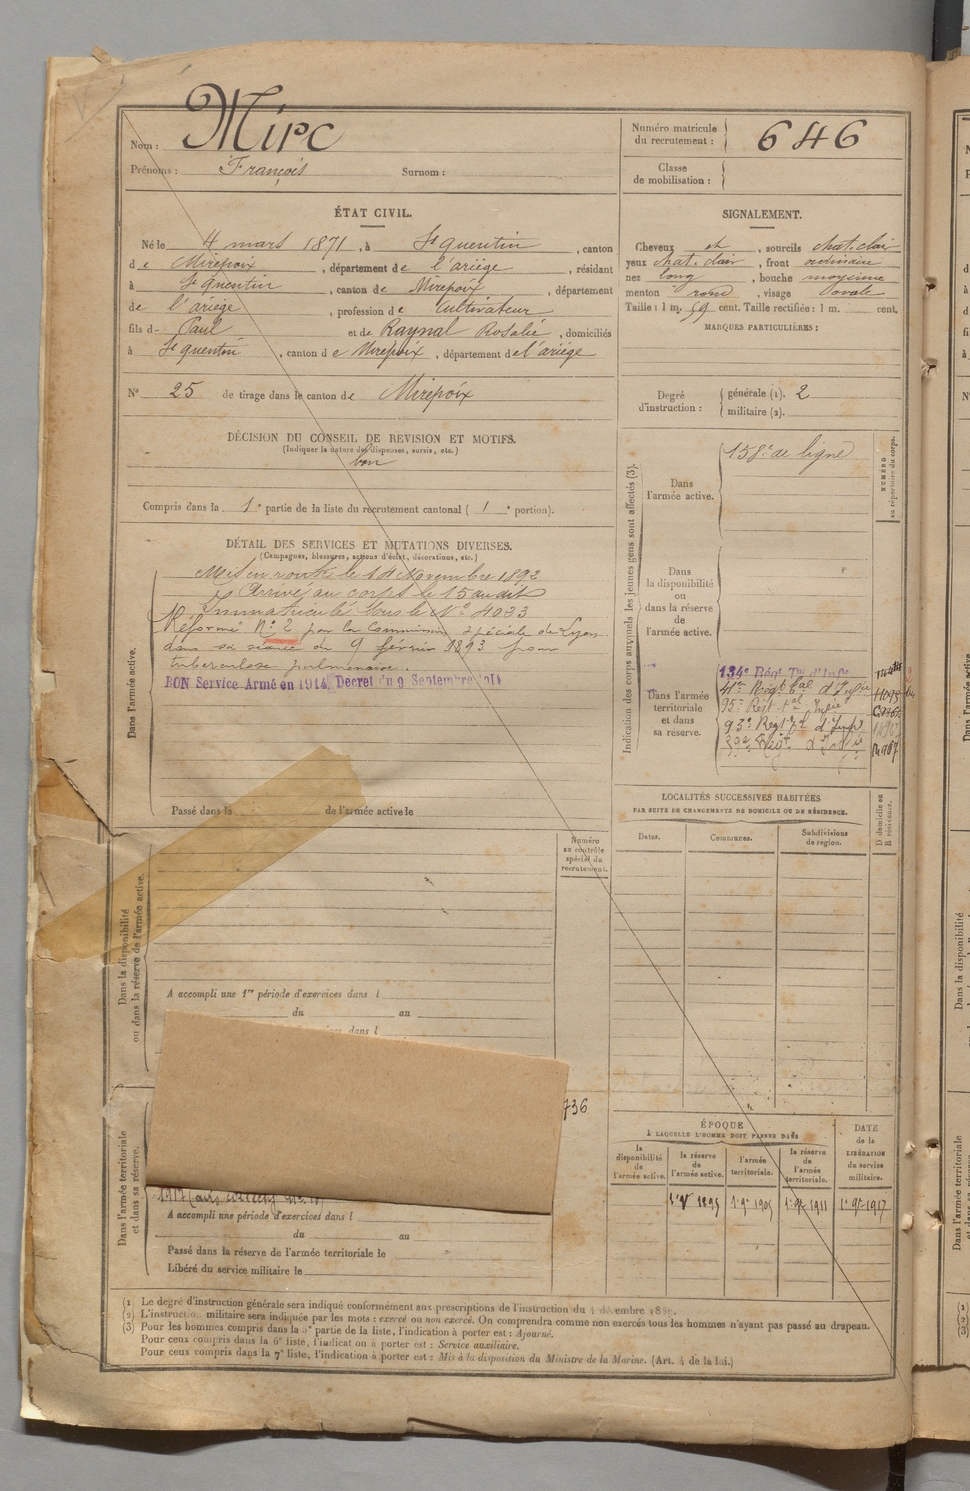 Nom : Mirc
Prénoms : François Surnom :
Numéro matricule du recrutement : 646
Classe de mobilisation :
ÉTAT CIVIL.
Né le 4 mars 1871, à St quentin, canton
de Mirepoix, département de l'ariège, résidant
à St quentin, canton de Mirepoix, département
de l'ariège, profession de Cultivateur
fils de Paul et de Raynal Rosalie, domiciliés
à St quentin, canton de Mirepoix, département de l'ariège
SIGNALEMENT.
Cheveux et, sourcils chat. clair
yeux chat. clair, front ordinaire
nez long, bouche moyenne
menton rond, visage ovale
Taille : 1 m. 59 cent. Taille rectifiée : 1 m. cent.
MARQUES PARTICULIÈRES :
N° 25 de tirage dans le canton de Mirepoix
Degré d'instruction : générale (1). 2
militaire (2).
DÉCISION DU CONSEIL DE REVISION ET MOTIFS.
(Indiquer la nature des dispenses, sursis, etc.)
bon
Compris dans la 1e partie de la liste du recrutement cantonal (1e portion).
DÉTAIL DES SERVICES ET MUTATIONS DIVERSES.
(Campagnes, blessures, actions d'éclat, décorations, etc.)
Dans l'armée active.
Mis en route le 14 Novembre 1892
Arrivé au corps le 15 au dit
Immatriculé sous le N° 4033
Réformé N° 2 par la Commission spéciale de Lyon
dans sa séance du 9 février 1893 pour
tuberculose pulmonaire.
BON Service Armé en 1914, Decret du 9 Septembre 1914
Passé dans la de l'armée active le
Indication des corps auxquels les jeunes gens sont affectés (3).
NUMÉRO au répertoire du corps.
Dans l'armée active.
158e de ligne
Dans la disponibilité ou dans la réserve de l'armée active.
Dans l'armée territoriale et dans sa réserve.
134e Régt Tal d'Infie
95e Régt
93e Regt tal d'Infie
LOCALITÉS SUCCESSIVES HABITÉES
PAR SUITE DE CHANGEMENTS DE DOMICILE OU DE RÉSIDENCE.
D domicile ou R résidence.
Dates. Communes. Subdivisions de region.
Numéro au contrôle spécial du recrutement.
Dans la disponibilité ou dans la réserve de l'armée active.
A accompli une 1re période d'exercices dans l
du au
exercices dans l
736
Dans l'armée territoriale et dans sa réserve.
A accompli une période d'exercices dans l
du au
Passé dans la réserve de l'armée territoriale le
Libéré du service militaire le
ÉPOQUE
À LAQUELLE L'HOMME DOIT PASSER DANS
la disponibilité de l'armée active. la réserve de l'armée active. l'armée territoriale. la réserve de l'armée territoriale.
DATE de la LIBÉRATION du service militaire.
1er 9bre 1895 1er 9bre 1905 1er 9bre 1911 1er 9bre 1917
(1) Le degré d'instruction générale sera indiqué conformément aux prescriptions de l'instruction du 4 décembre 1889.
(2) L'instruction militaire sera indiquée par les mots : exercé ou non exercé. On comprendra comme non exercés tous les hommes n'ayant pas passé au drapeau.
(3) Pour les hommes compris dans la 5e partie de la liste, l'indication à porter est : Ajourné.
Pour ceux compris dans la 6e liste, l'indication à porter est : Service auxiliaire.
Pour ceux compris dans la 7e liste, l'indication à porter est : Mis à la disposition du Ministre de la Marine. (Art. 4 de la loi.)